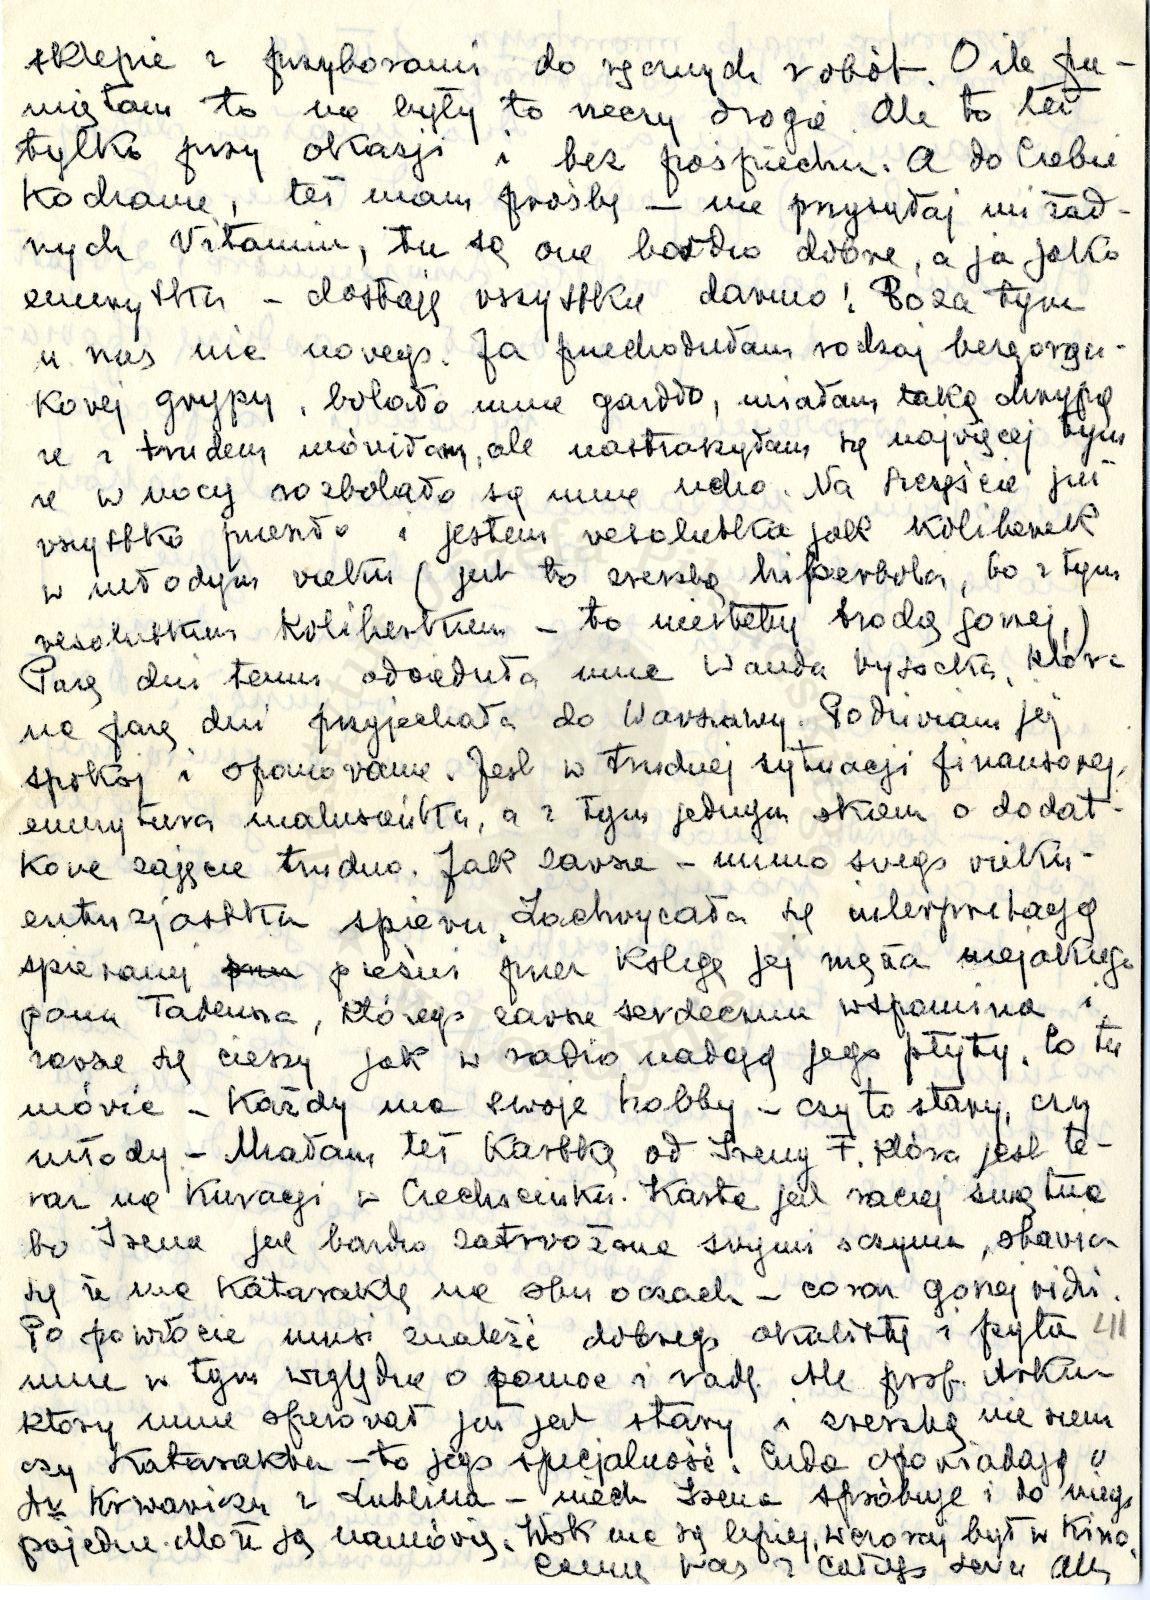 sklepie z przyborami do ręcznych robót. O ile pa-
miętam to nie były to rzeczy drogie. Ale to też
tylko przy okazji i bez pośpiechu. A do Ciebie
Kochanie, też mam prośbę – nie przysyłaj mi żad-
nych Vitamin, tu są one bardzo dobre, a ja jako
emerytka – dostaję wszystkie darmo! Poza tym
u nas nic nowego. Ja przechodziłam rodzaj bezgorącz-
kowej grypy, bolało mnie gardło, miałam taką chrypę
że z trudem mówiłam, ale nastraszyłam się najwięcej tym
że w nocy rozbolało się mnie ucho. Na szczęście już
wszystko przeszło i jestem wesolutka jak koliberek
w młodym wieku (jest to zresztą hiperbola, bo z tym
wesolutkim koliberkiem – to niestety trochę gorzej.)
Parę dni temu odwiedziła mnie Wanda Wysocka, która
na parę dni przyjechała do Warszawy. Podziwiam jej
spokój i opanowanie. Jest w trudnej sytuacji finansowej,
emerytura malusieńka, a z tym jednym okiem o dodat-
kowe zajęcie trudno. Jak zawsze – mimo swego wieku –
entuzjastka śpiewu. Zachwycała się interpretacją
śpiewanej pieśni przez kolegę jej męża niejakiego
pana Tadeusza, którego zawsze serdecznie wspomina i
zawsze się cieszy jak w radio nadają jego płyty. Co tu
mówić – Każdy ma swoje hobby – czy to stary, czy
młody – Miałam też kartkę od Ireny F. która jest te-
raz na Kuracji w Ciechocinku. Karta jest raczej smutna
bo Irena jest bardzo zatrwożona swymi oczyma, obawia
się że ma Kataraktę na obu oczach – coraz gorzej widzi.
Po powrocie musi znaleźć dobrego okulistę i pyta
411
mnie w tym względzie o pomoc i radę. Ale prof. Arkin
który mnie operował już jest stary i zresztą nie wiem
czy Katarakta – to jego specjalność. Cuda opowiadają o
dr Krwawiczu z Lublina – niech Irena spróbuje i do niego
pojedzie. Może ją namówię. Wok ma się lepiej, wczoraj był w Kino.
Całuję Was z całego serca